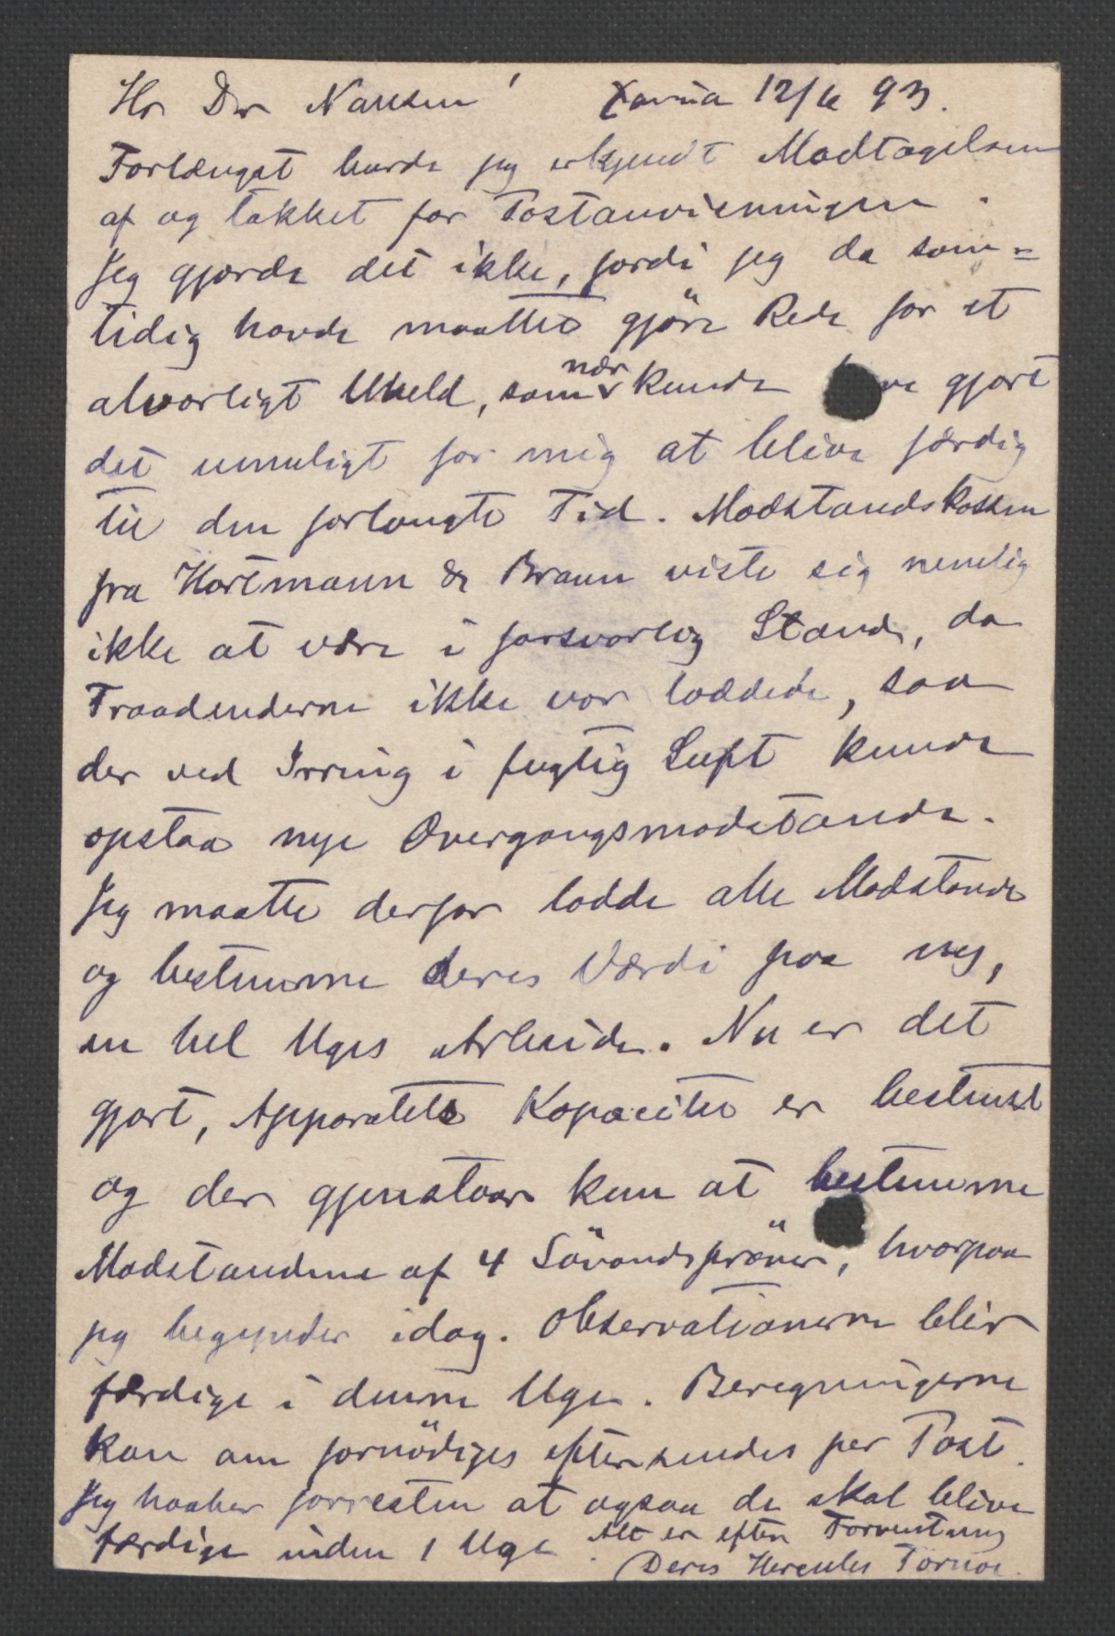 Hr Dr Nansen! Xania 12/6 93.
Forlængst burde jeg erkjendt Modtagelsen
af og takket for Postanvisningen.
Jeg gjorde det ikke, fordi jeg da sam=
tidig havde maattet gjöre Rede for et
alvorligt Uheld, som nær kunde ve gjort
det umuligt for mig at blive færdig
til den forlangte Tid. Modstandskassen
fra Hartmann & Braun viste sig nemlig
ikke at være i forsvarlig Stand, da
Traadenderne ikke var loddede, saa
der ved Irring i fugtig Luft kunde
opstaa nye Overgangsmodstande.
Jeg maatte derfor lodde alle Modstande
og bestemme deres Værdi paa ny,
en hel Uges Arbeide. Nu er det
gjort, Apparatets Kapacitet er bestemt
og der gjenstaar kun at bestemme
Modstandene af 4 Sövandspröver, hvorpaa
jeg begynder idag. Observationerne blir
færdige i denne Uge. Beregningerne
kan om fornödiges eftersendes per Post.
Jeg haaber forresten at ogsaa de skal blive
færdige inden 1 Uge. Alt er efter Forventning
Deres Hercules Tornöe.